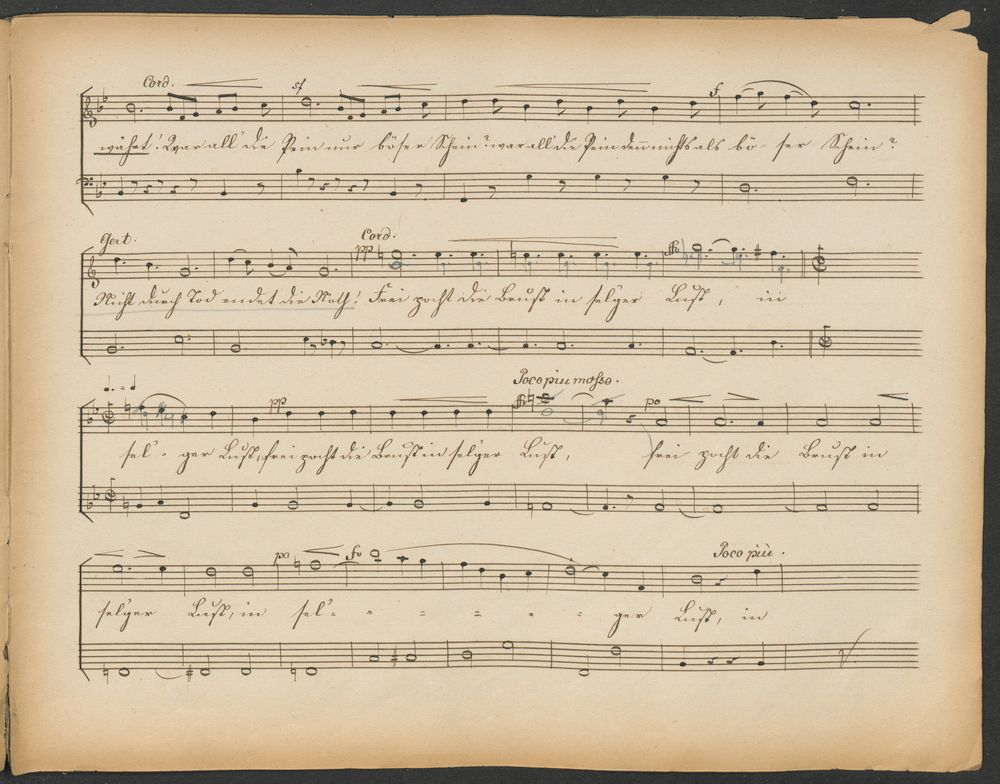 Cord. sf f
währt! War all' die Pein nur böser Schein? war all' die Pein den nichts als bö - ser Schein?
Gert: Cord: pp
Nicht durch Tod endet die Noth! Frei pocht die Brust in sel'ger Lust, in
pp Poco piu mosso. po
sel' - ger Lust, frei pocht die Brust in sel'ger Lust, frei pocht die Brust in
po Poco più.
sel'ger Lust, in sel' - - - - - - ger Lust, in